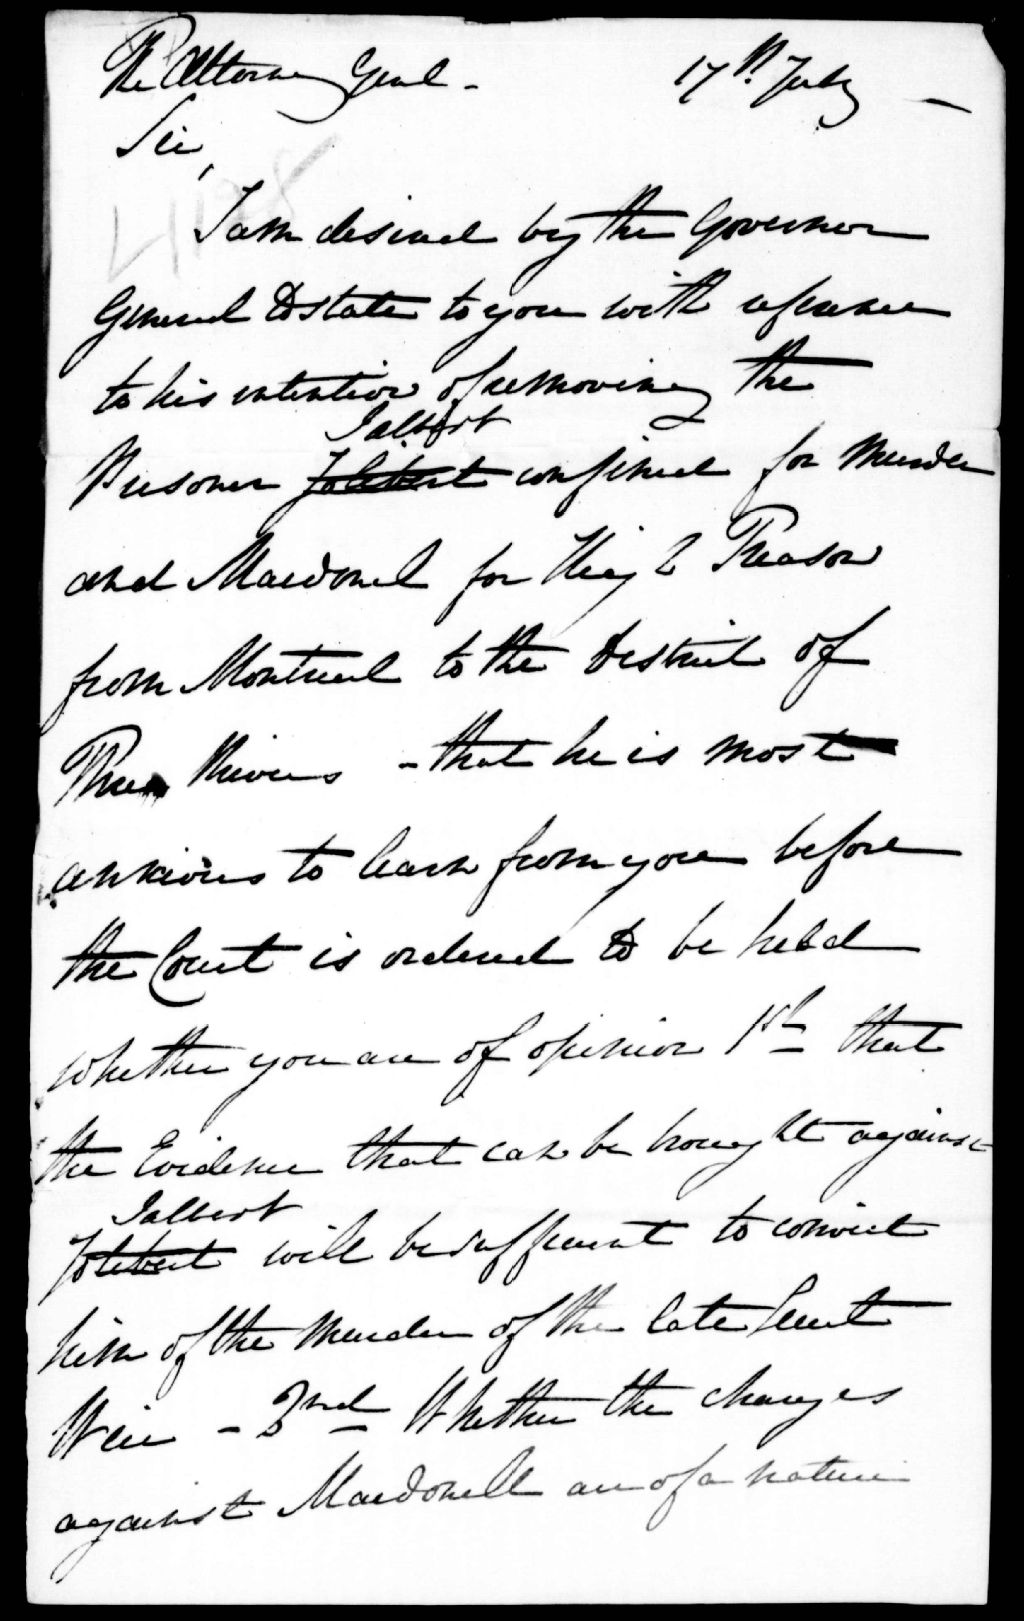 The Attorney Genl - 17th July -
Sir,
4198
I am desired by the Governor
General to state to you with reference
to his intention of removing the
Jalbert
Prisoner Jolibert confined for Murder
and Macdonel for High Treason
from Montreal to the District of
Three Rivers - that he is most
anxious to learn from you before
the Court is ordered to be held
whether you are of opinion 1st that
the Evidence that can be brought against
Jalbert
Jolibert will be sufficient to convict
him of the Murder of the late Lieut
Weir - 2nd - Whether the charges
against Macdonell are of a nature